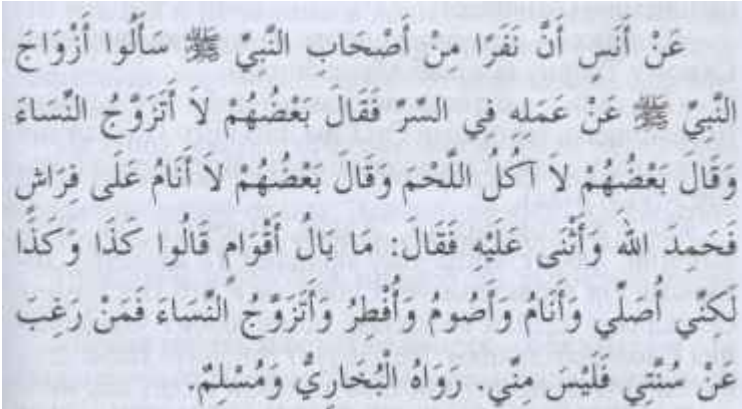 عَنْ أَنَسٍ أَنَّ نَفَرًا مِنْ أَصْحَابِ النَّبِيِّ ﷺ سَأَلُوا أَزْوَاجَ
النَّبِيِّ ﷺ عَنْ عَمَلِهِ فِي السِّرِّ فَقَالَ بَعْضُهُمْ لاَ أَتَزَوَّجُ النِّسَاءَ
وَقَالَ بَعْضُهُمْ لاَ آكُلُ اللَّحْمَ وَقَالَ بَعْضُهُمْ لاَ أَنَامُ عَلَى فِرَاشٍ
فَحَمِدَ اللهَ وَأَثْنَى عَلَيْهِ فَقَالَ: مَا بَالُ أَقْوَامٍ قَالُوا كَذَا وَكَذَا
لَكِنِّي أُصَلِّي وَأَنَامُ وَأَصُومُ وَأُفْطِرُ وَأَتَزَوَّجُ النِّسَاءَ فَمَنْ رَغِبَ
عَنْ سُنَّتِي فَلَيْسَ مِنِّي. رَوَاهُ الْبُخَارِيُّ وَمُسْلِمٌ.